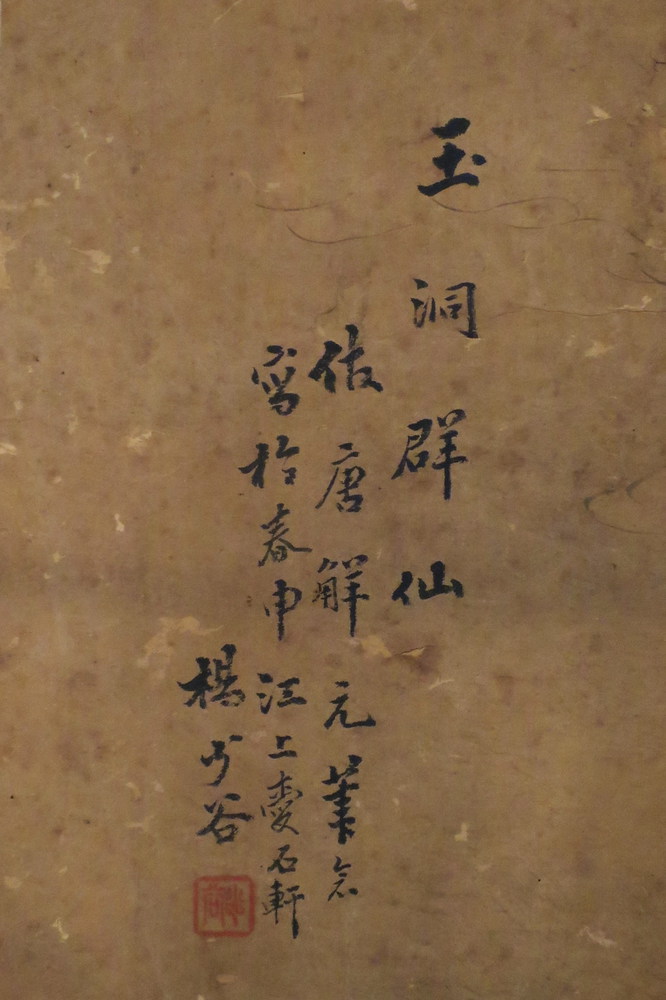 玉洞群仙
仿唐解元筆意
寫於春申江上愛石軒
楊少谷